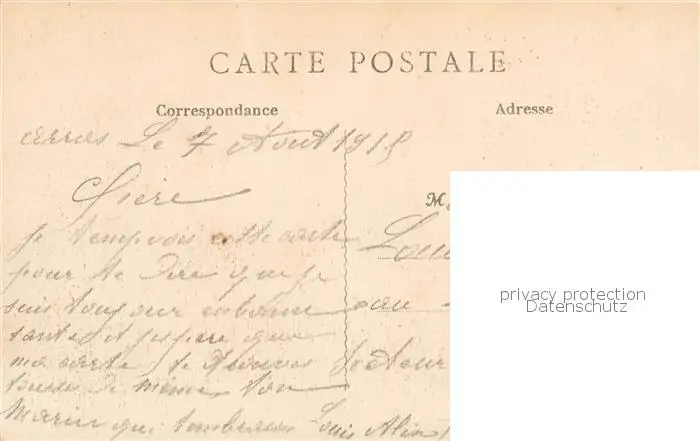 CARTE POSTALE
Correspondance
Adresse
Le 7 Aout 1915
Chere
je tempvois cette carte
pour te dire que je
suis toujour en bonne
santé et jespere que
ma carte te trouves
de même ton
Marin qui tembrasse Louis
M
Lou
au
Secteur
privacy protection
Datenschutz